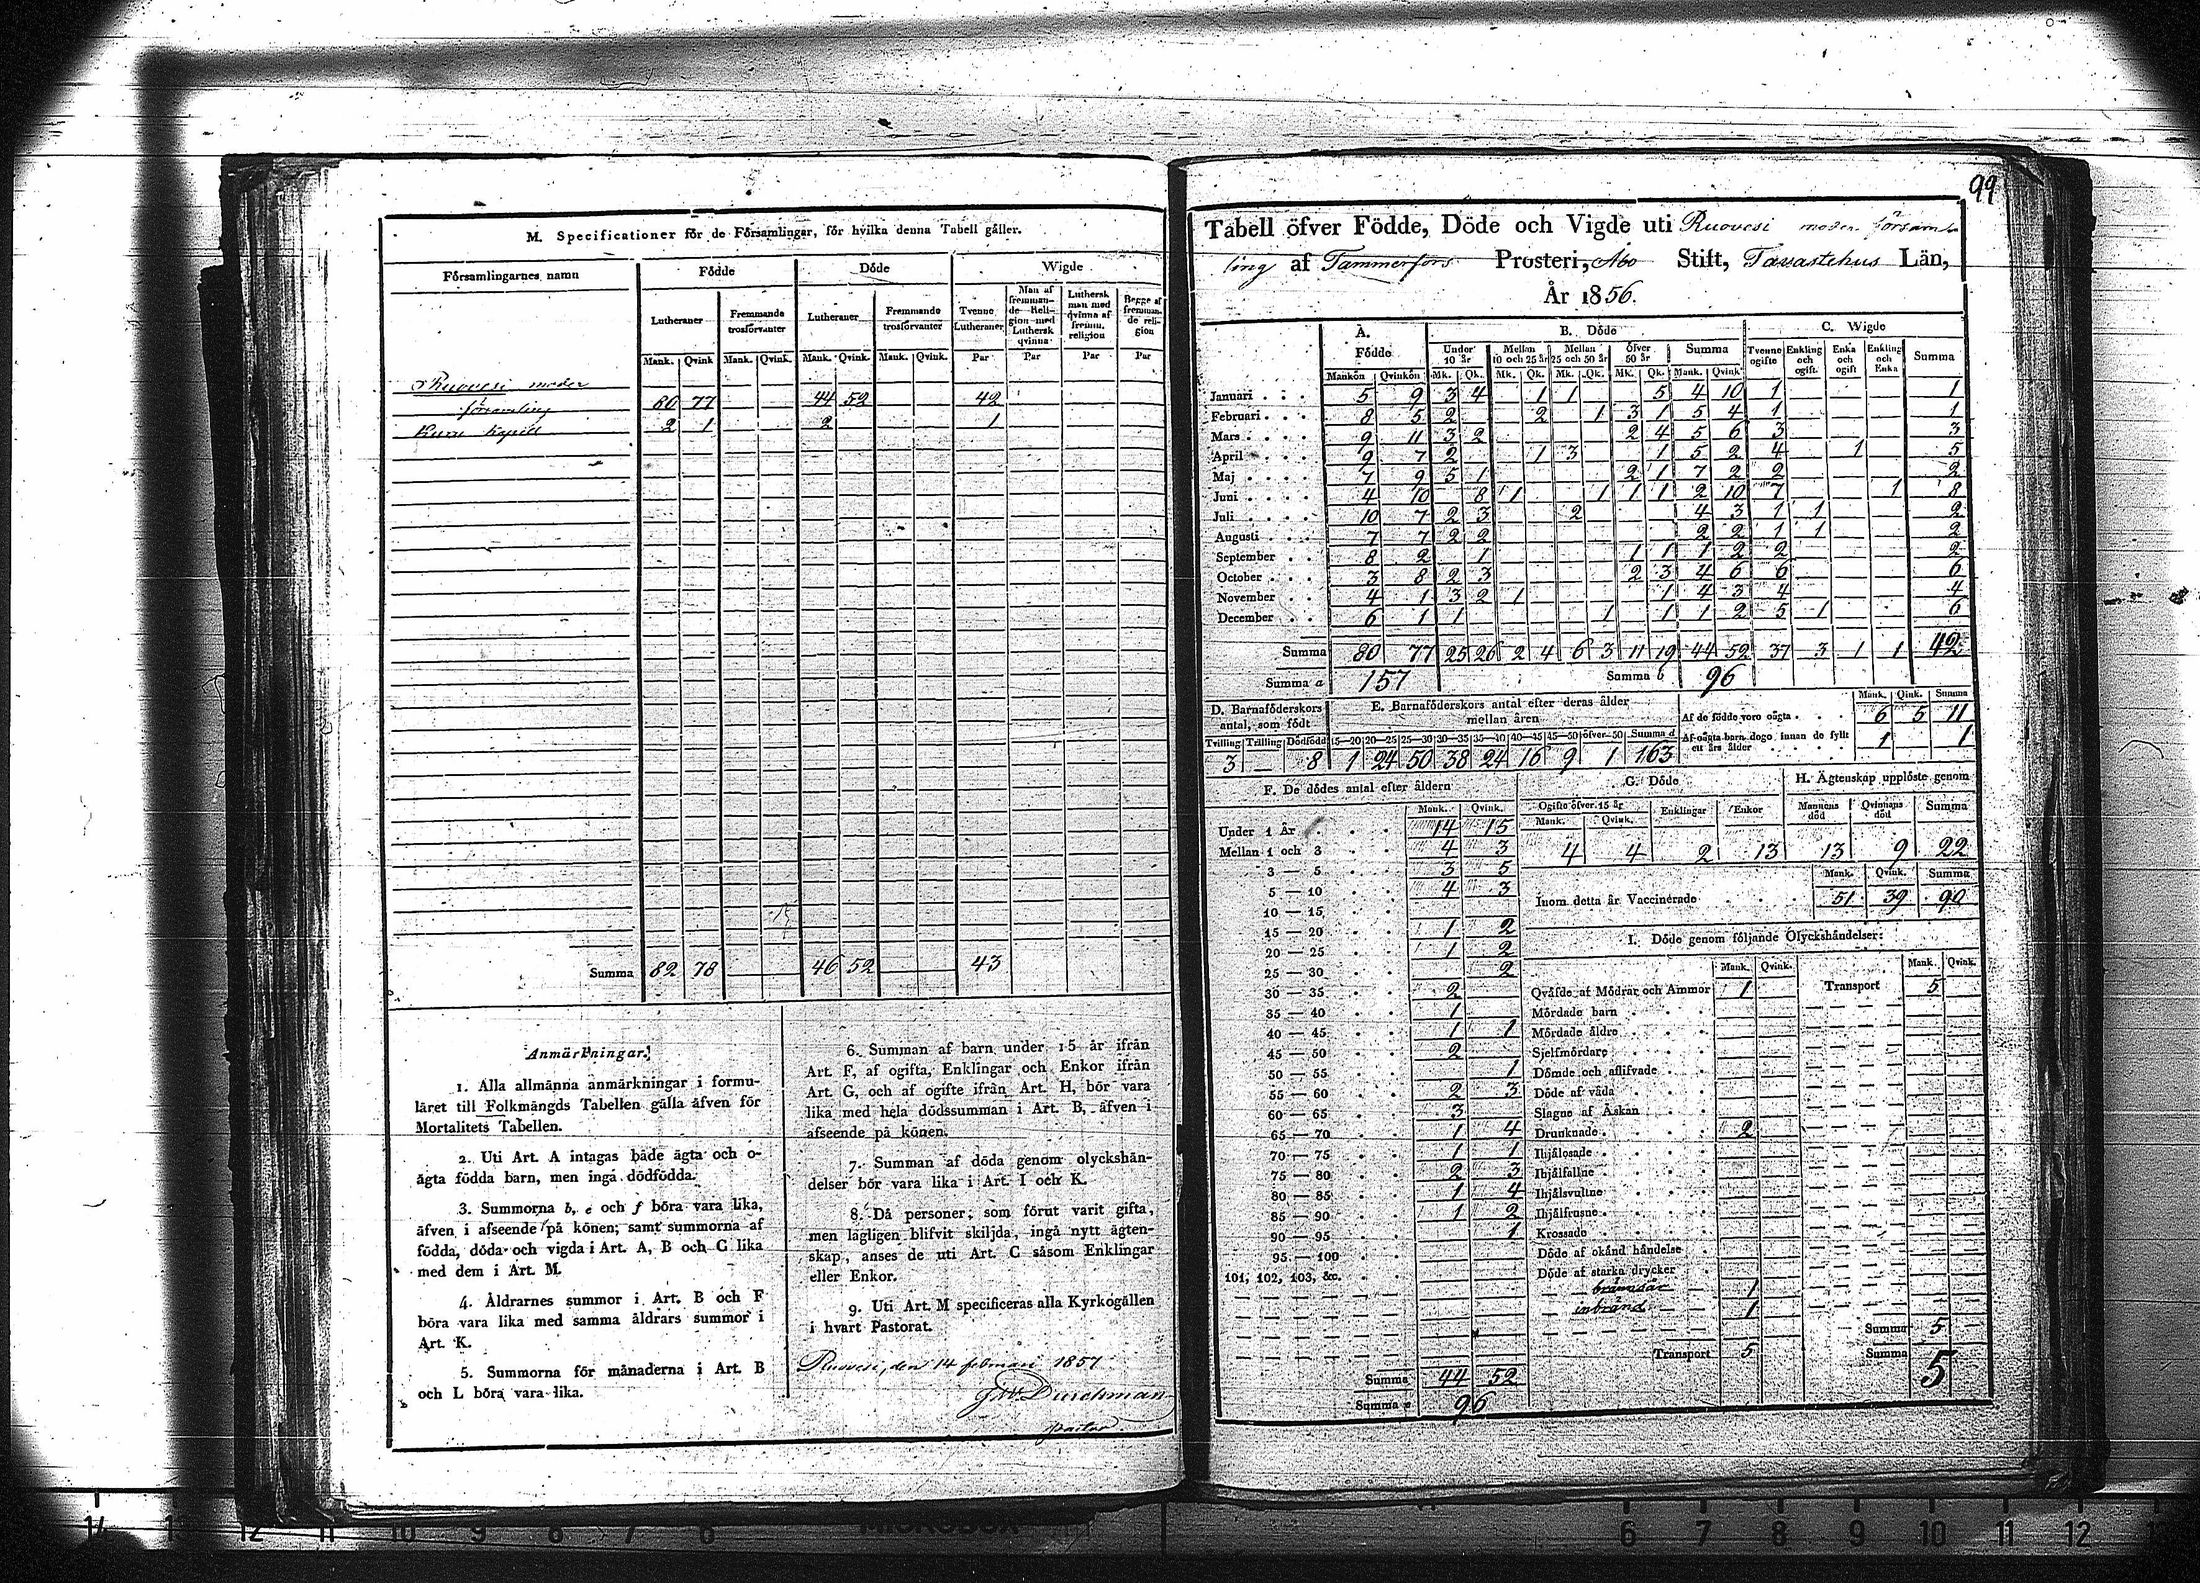 M. Specificationer för de Församlingar, för hvilka denna Tabell gäller.
Församlingarnes namn Födde Döde Wigde
Lutheraner Fremmande trosförvanter Lutheraner Fremmande trosförvanter Tvenne Lutheraner Man af fremmande Religion med Luthersk qvinna Luthersk man med qvinna af fremm. religion Begge af fremmande religion
Mank. Qvink Mank. Qvink. Mank. Qvink. Mank. Qvink. Par Par Par Par
Ruovesi moder
församling 80 77 44 52 42
Kuru kapell 2 1 2 1
Summa 82 78 46 52 43
Anmärkningar.
1. Alla allmänna anmärkningar i formu-
läret till Folkmängds Tabellen gälla äfven för
Mortalitets Tabellen.
2. Uti Art. A intagas både ägta och o-
ägta födda barn, men inga dödfödda.
3. Summorna b, e och f böra vara lika,
äfven i afseende på könen; samt summorna af
födda, döda och vigda i Art. A, B och C lika
med dem i Art. M.
4. Åldrarnes summor i Art. B och F
böra vara lika med samma åldrars summor i
Art. K.
5. Summorna för månaderna i Art. B
och L böra vara lika.
6. Summan af barn under 15 år ifrån
Art. F, af ogifta, Enklingar och Enkor ifrån
Art. G, och af ogifte ifrån Art. H, bör vara
lika med hela dödssumman i Art. B, äfven i
afseende på könen.
7. Summan af döda genom olyckshän-
delser bör vara lika i Art. I och K.
8. Då personer, som förut varit gifta,
men lagligen blifvit skiljda, ingå nytt ägten-
skap, anses de uti Art. C såsom Enklingar
eller Enkor.
9. Uti Art. M specificeras alla Kyrkogällen
i hvart Pastorat.
Ruovesi, den 14 februari 1857
Durchman
pastor
99
Tabell öfver Födde, Döde och Vigde uti Ruovesi moder församb
ling af Tammerfors Prosteri, Åbo Stift, Tavastehus Län,
År 1856.
A. Födde B. Döde C. Wigde
Under 10 år Mellan 10 och 25 år Mellan 25 och 50 år öfver 50 år Summa Tvenne ogifte Enkling och ogift. Enka och ogift Enkling och Enka Summa
Mankön Qvinkön Mk. Qk. Mk. Qk. Mk. Qk. Mk. Qk. Mank. Qvink
Januari 5 9 3 4 1 1 5 4 10 1 1
Februari 8 5 2 2 1 3 1 5 4 1 1
Mars 9 11 3 2 2 4 5 6 3 3
April 9 7 2 1 3 1 5 2 4 1 5
Maj 7 9 5 1 2 1 7 2 2 2
Juni 4 10 8 1 1 1 1 2 10 7 1 8
Juli 10 7 2 3 2 4 3 1 1 2
Augusti 7 7 2 2 2 2 1 1 2
September 8 2 1 1 1 1 2 2 2
October 3 8 2 3 2 3 4 6 6 6
November 4 1 3 2 1 1 4 3 4 4
December 6 1 1 1 1 1 2 5 1 6
Summa 80 77 25 26 2 4 6 3 11 19 44 52 37 3 1 1 42
Summa a 157 Summa b 96
D. Barnaföderskors antal, som födt
Tvilling Trilling Dödfödd
3 — 8
E. Barnaföderskors antal efter deras ålder
mellan åren
15—20 20—25 25—30 30—35 35—40 40—45 45—50 öfver 50 Summa d
1 24 50 38 24 16 9 1 163
Mank. Qink. Summa
Af de födde voro oägta 6 5 11
Af oägta barn dogo innan de fyllt
ett års ålder 1 1
F. De dödes antal efter åldern
Mank. Qvink.
Under 1 År 14 15
Mellan 1 och 3 4 3
3 — 5 3 5
5 — 10 4 3
10 — 15
15 — 20 1 2
20 — 25 1 2
25 — 30 2
30 — 35 2
35 — 40 1
40 — 45 1 1
45 — 50 2
50 — 55 1
55 — 60 2 3
60 — 65 3
65 — 70 1 4
70 — 75 1 1
75 — 80 2 3
80 — 85 1 4
85 — 90 1 2
90 — 95 1
95 — 100
101, 102, 103, &c.
Summa 44 52
Summa e 96
G. Döde
Ogifte öfver 15 år Enklingar Enkor
Mank. Qvink.
4 4 2 13
H. Ägtenskap upplöste genom
Mannens död Qvinnans död Summa
13 9 22
Mank. Qvink. Summa
Inom detta år Vaccinerade 51 39 90
I. Döde genom följande Olyckshändelser:
Mank. Qvink. Mank. Qvink.
Qväfde af Mödrar och Ammor 1 Transport 5
Mördade barn
Mördade äldre
Sjelfmördare
Dömde och aflifvade
Döde af våda
Slagne af Åskan
Drunknade 2
Ihjälosade
Ihjälfallne
Ihjälsvultne
Ihjälfrusne
Krossade
Döde af okänd händelse
Döde af starka drycker
brännsår 1
inbränd 1
Summa 5
Transport 5 Summa 5
14 13 12 11 10 9 8 7 6
6 7 8 9 10 11 12